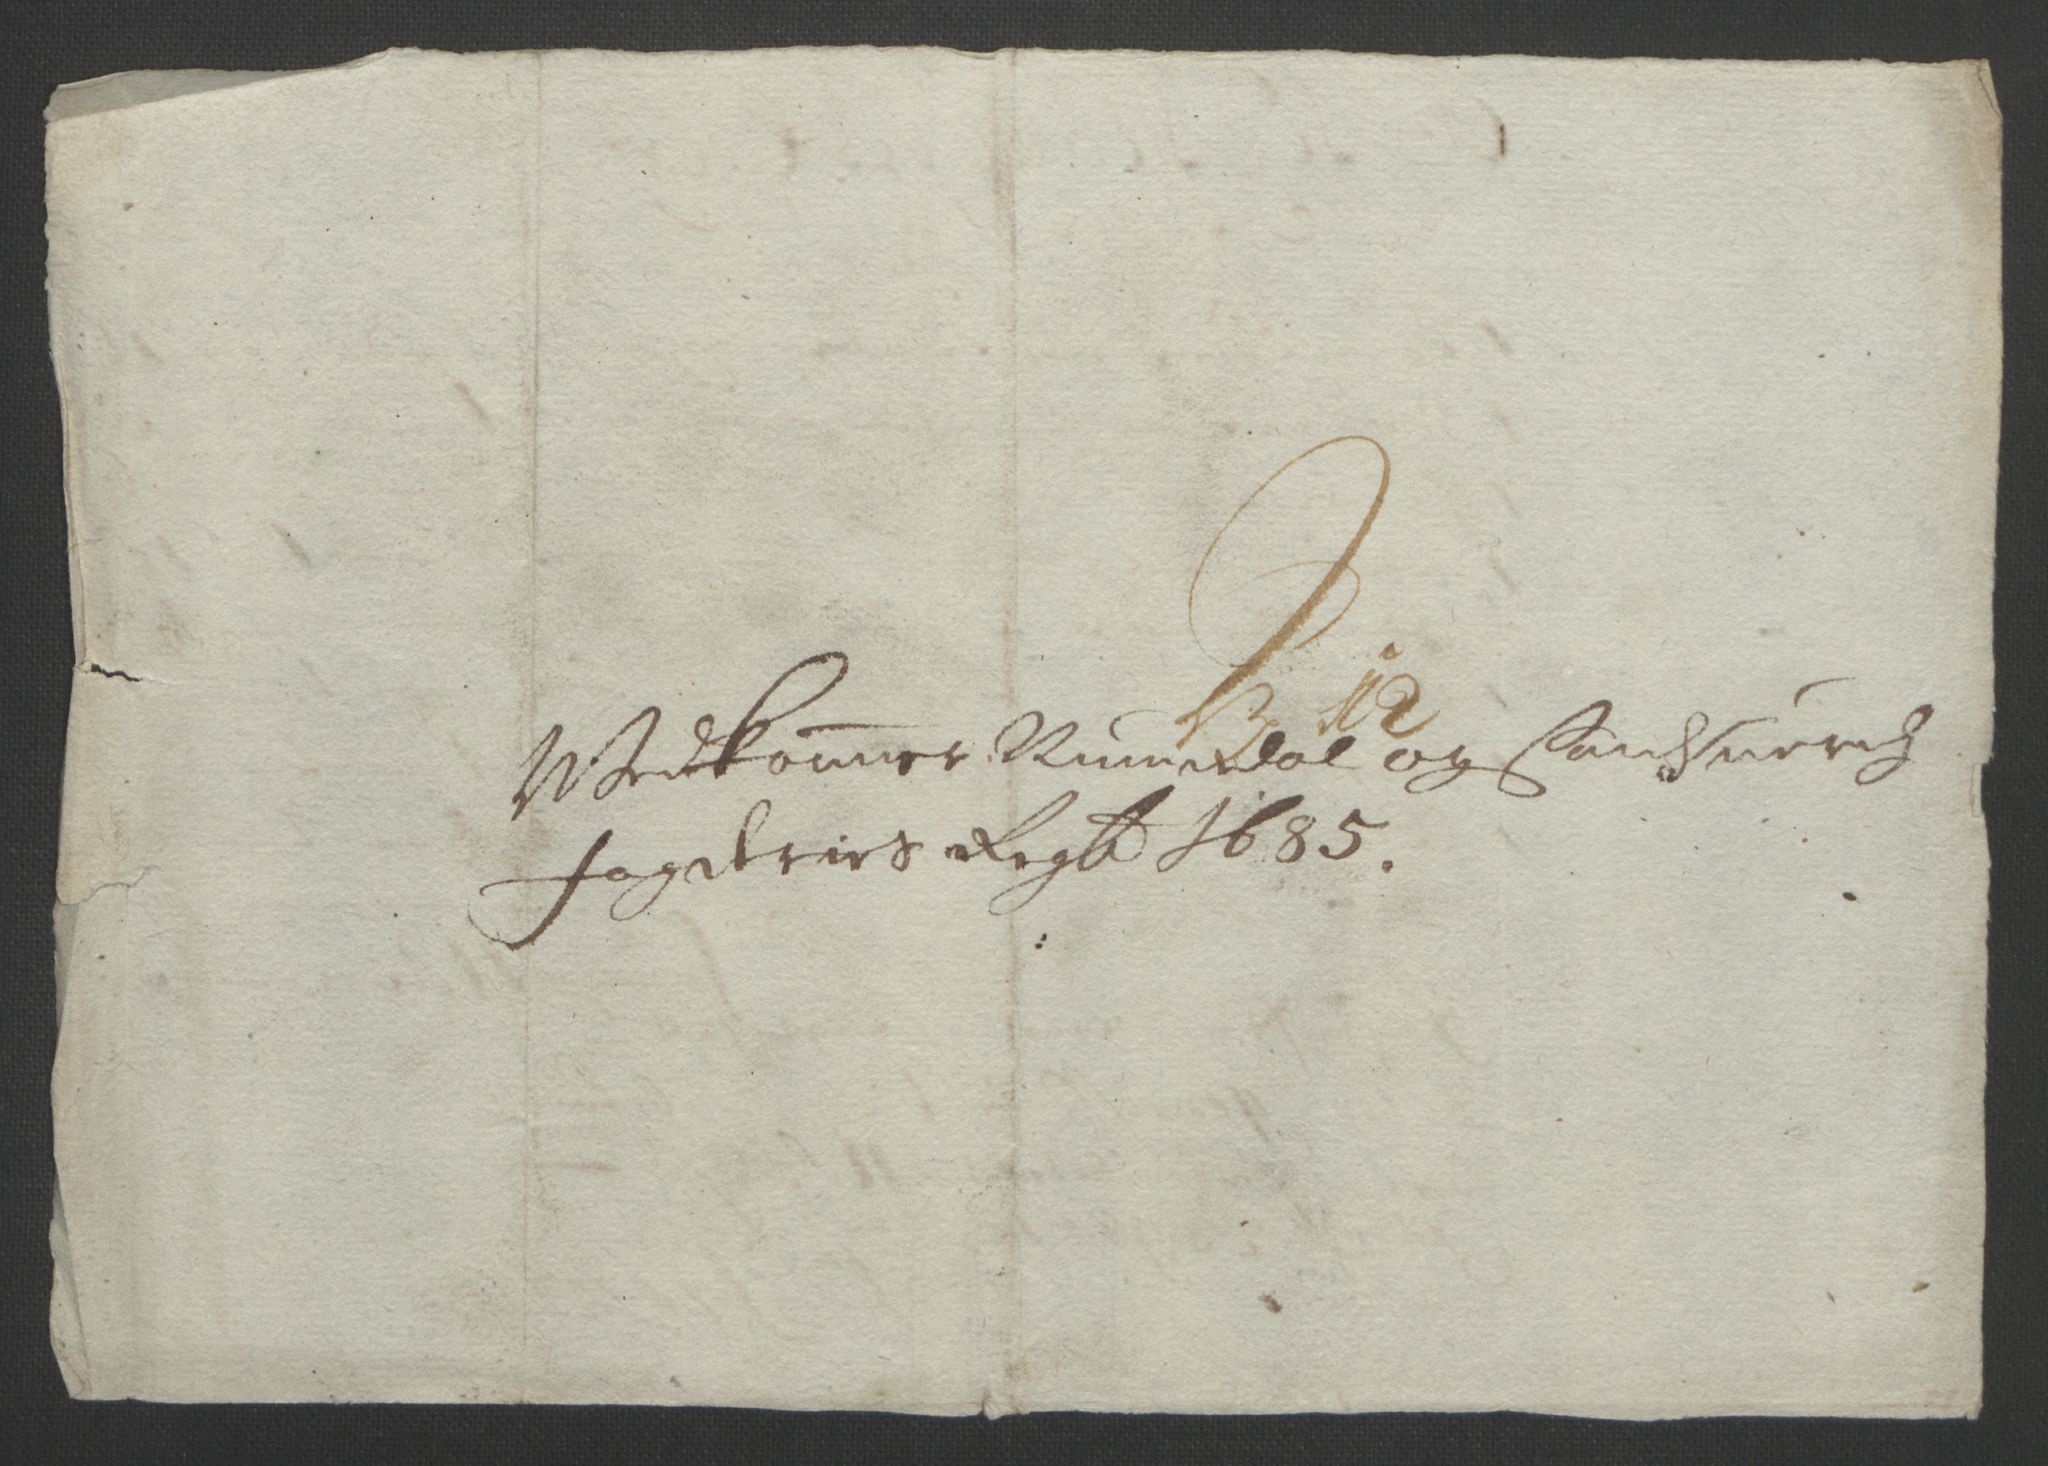 N 12
Wedkommer Rumsdal og Sundmerch
fogderies Regsb 1685.